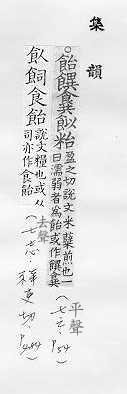 集韻
飴䬾䬮𩚵粭盈之切說文米糱煎也一
曰濡弱者爲飴或作䬾䬮
平聲
(七之. P54
飤飼食飴說文糧也或从
司亦作食飴
去聲
(七志. 祥吏切. P484)